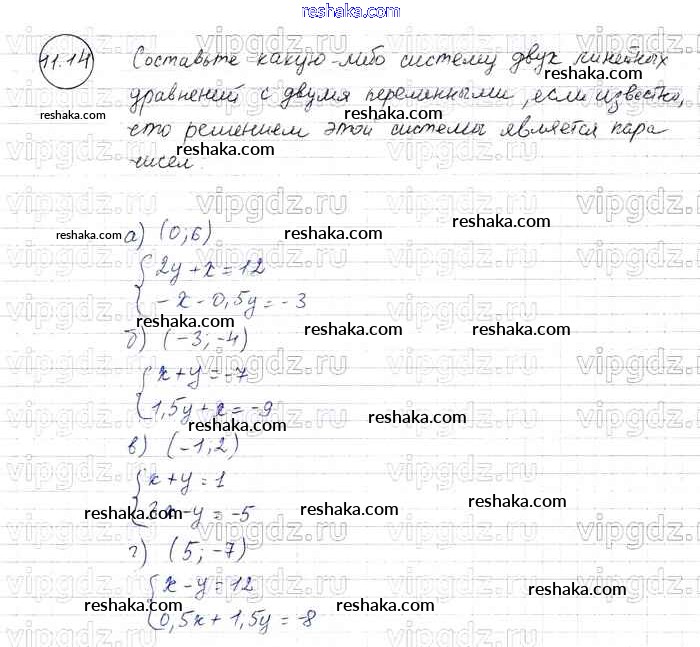 reshaka.com
11.14 Составьте какую-либо систему двух линейных
уравнений с двумя переменными, если известно,
что решением этой системы является пара
чисел.
а) (0; 6)
2y + x = 12
-x - 0,5y = -3
б) (-3; -4)
x + y = -7
1,5y + x = -9
в) (-1; 2)
x + y = 1
x - y = -5
г) (5; -7)
x - y = 12
0,5x + 1,5y = -8
vipgdz.ru
reshaka.com